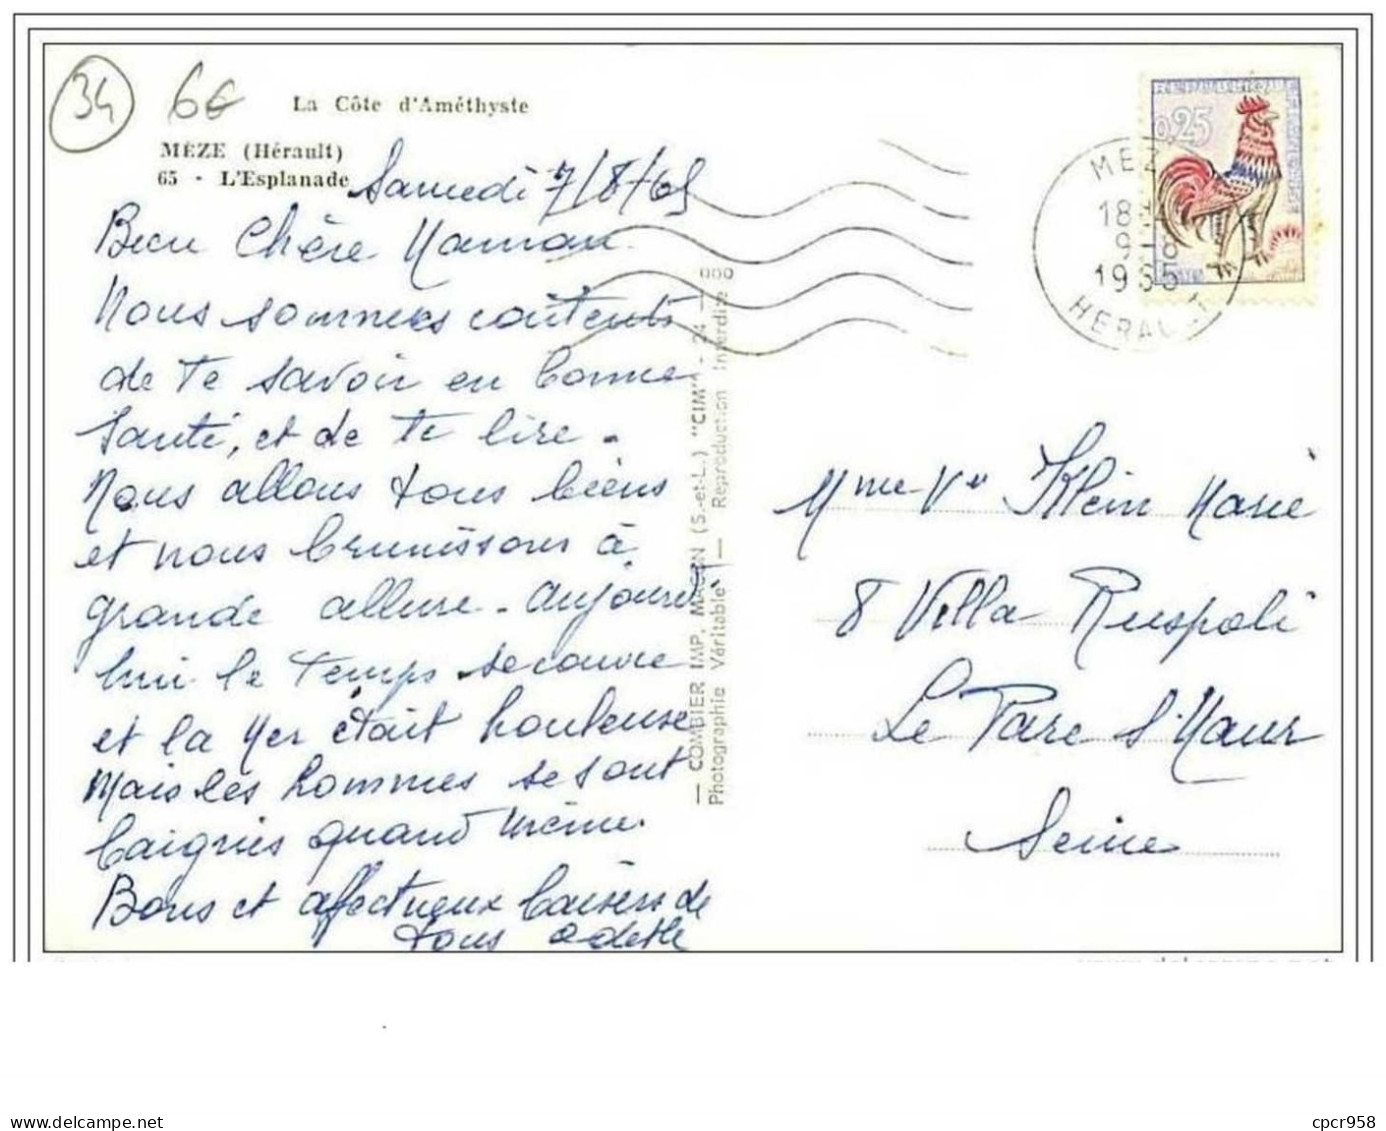 34
6€
La Côte d'Améthyste
MÈZE (Hérault)
65 - L'Esplanade
Samedi 7/8/65
Bien Chère Maman
Nous sommes contents
de te savoir en bonne
santé, et de te lire.
Nous allons tous biens
et nous brunissons à
grande allure. Aujourd'
hui le temps se couvre
et la Mer était houleuse
Mais les hommes se sont
baignés quand même.
Bons et affectueux baisers de
tous Odette
— COMBIER IMP. MACON (S.-et-L.) "CIM" - 24 —
Photographie Véritable — Reproduction Interdite
0,25
18
9-8
1965
HERAULT
Mme Ve Klein Marie
8 Villa Ruspoli
Le Parc St Maur
Seine
cpcr958